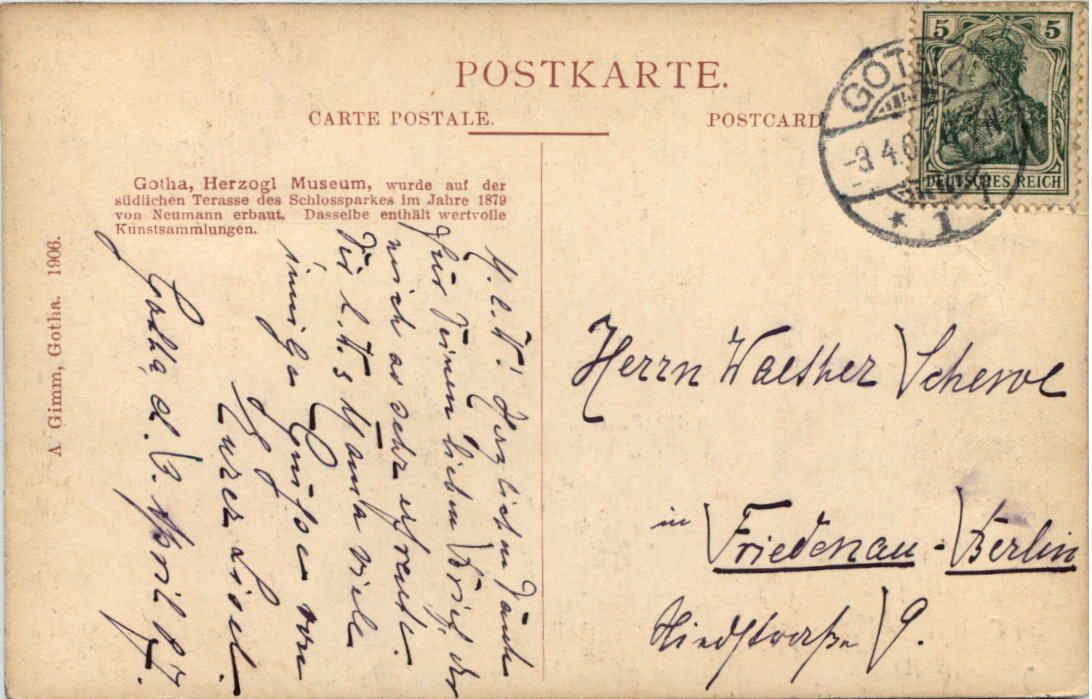 POSTKARTE.
CARTE POSTALE.
POSTCARD
5 5
DEUTSCHES REICH
GOTHA
-3.4.07
* 1
Gotha, Herzogl Museum, wurde auf der
südlichen Terasse des Schlossparkes im Jahre 1879
von Neumann erbaut. Dasselbe enthält wertvolle
Kunstsammlungen.
A Gimm, Gotha. 1906.
Herzlichen Dank
für Deinen lieben Brief, der
mich so sehr erfreute.
Dir viele
innige Grüsse von
Eurer Liesel.
Gotha, d. 3. April 07.
Herrn Walther
in Friedenau-Berlin
Niedstraße 9.